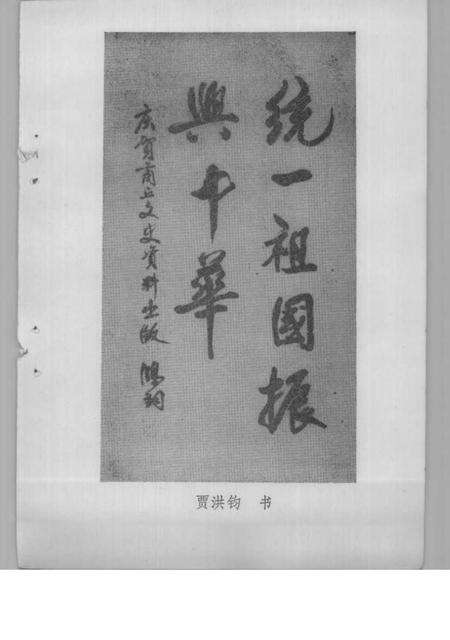 统一祖國振
興中華
庆贺商丘文史資料出版 洪钧
贾洪钧 书